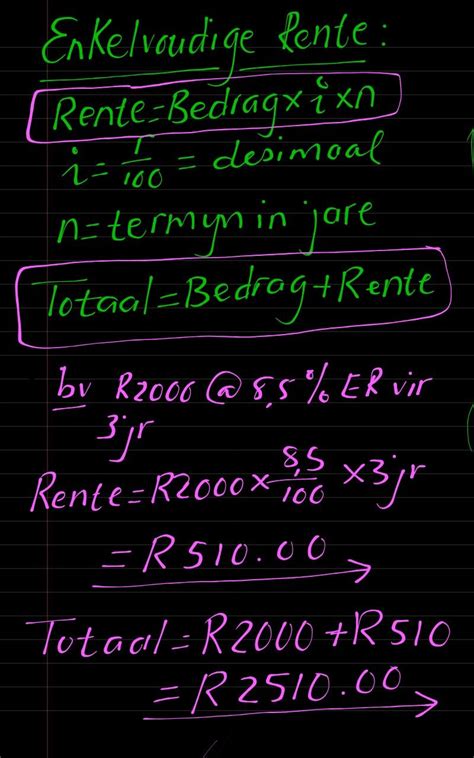 Enkelvoudige Rente:
Rente=Bedrag×i×n
i=r/100 = desimaal
n=termyn in jare
Totaal=Bedrag+Rente
bv R2000 @ 8,5 % ER vir
3jr
Rente=R2000×8,5/100 ×3jr
=R510.00
Totaal=R2000+R510
=R2510.00